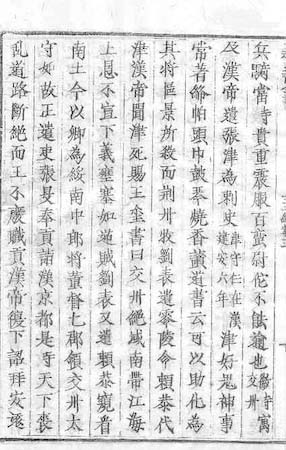 兵騎當時貴重震服百蠻尉佗不能踰也
及漢帝遣張津為刺史津守仁在漢建安六年津好鬼神事
常著絳帕頭巾鼓琴燒香讀道書云可以助化為
其將區景所殺而荆州牧劉表遣零陵令賴恭代
津漢帝聞津死賜王璽書曰交州絶域南帶江海
上恩不宣下義壅塞知逆賊劉表又遣賴恭窺看
南土今以卿為綏南中郎將董督七郡領交州太
守如故王遣吏張旻奉貢詣漢京都是時天下喪
乱道路斷絶而王不廢職貢漢帝復下詔拜安遠